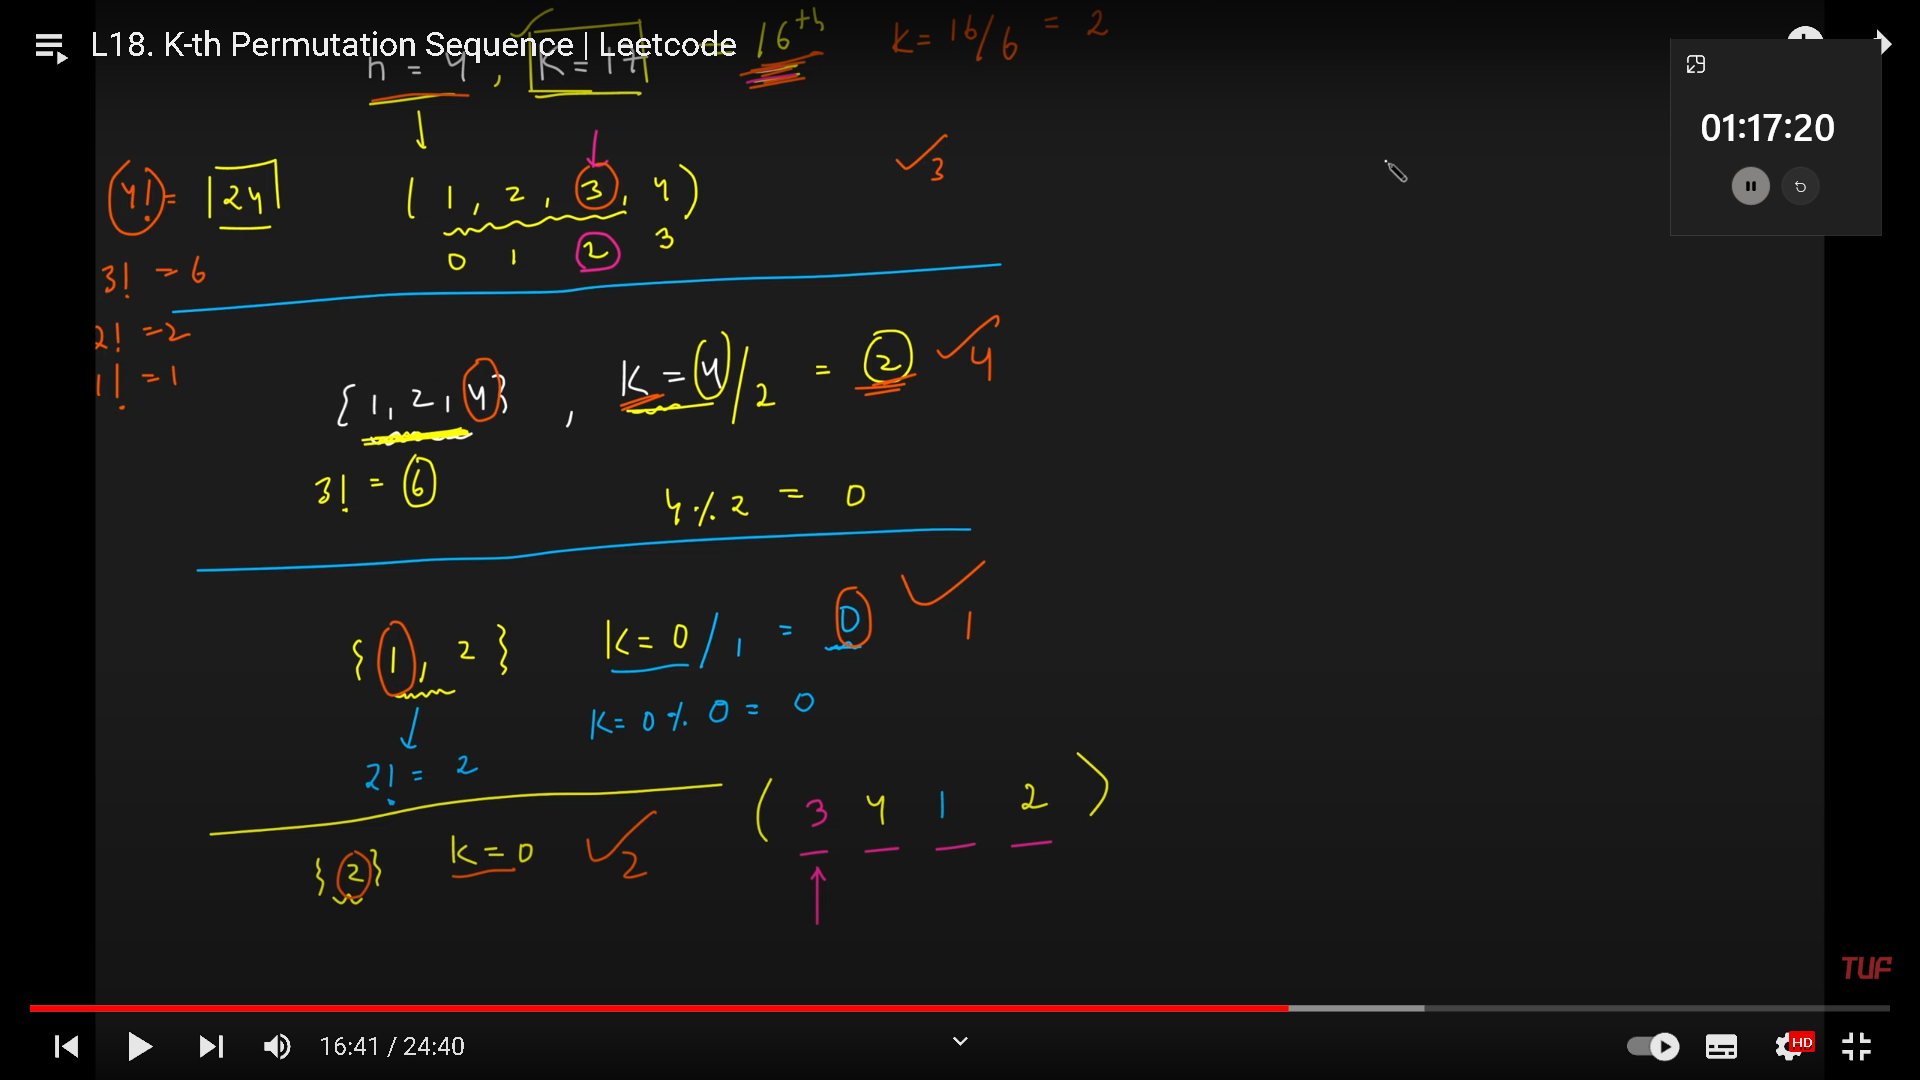 L18. K-th Permutation Sequence | Leetcode
n = 4 , K = 17 = 16th K = 16/6 = 2
01:17:20
4! = 24 ( 1 , 2 , 3 , 4 ) 3
0 1 2 3
3! = 6
2! = 2
1! = 1
{ 1, 2, 4 } , K = 4/2 = 2 4
3! = 6 4 % 2 = 0
{ 1, 2 } K = 0/1 = 0 1
K = 0 % 0 = 0
2! = 2
( 3 4 1 2 )
{ 2 } K = 0 2
TUF
16:41 / 24:40
HD